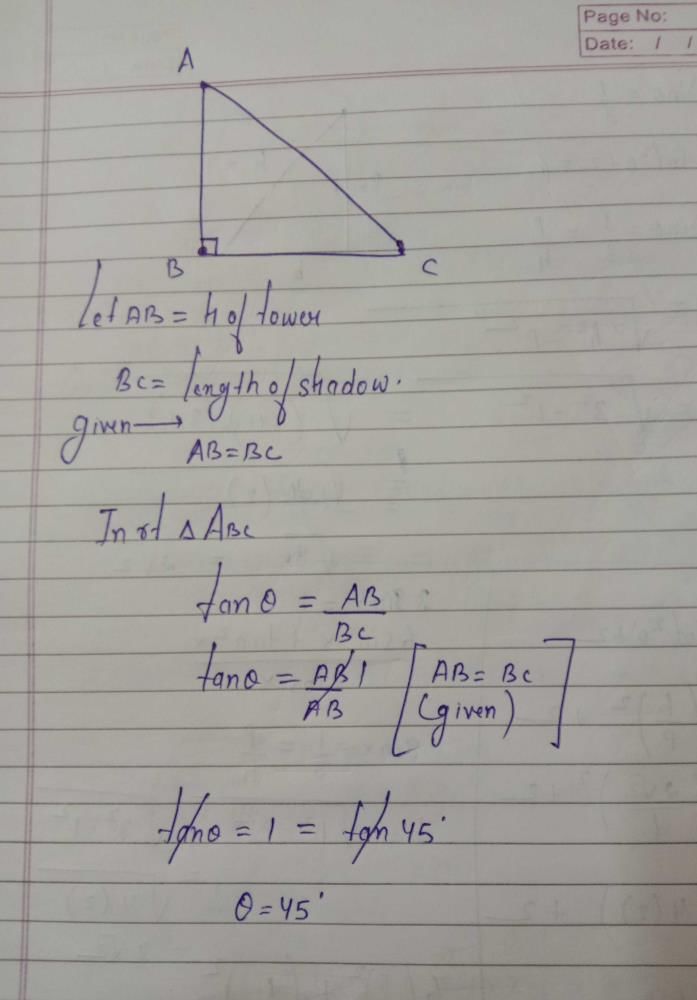 Page No:
Date: / /
A
B
C
Let AB = h of tower
BC = length of shadow.
given →
AB = BC
In rt Δ ABC
tan θ = AB / BC
tan θ = AB / AB 1 [AB = BC (given)]
tan θ = 1 = tan 45°
θ = 45°